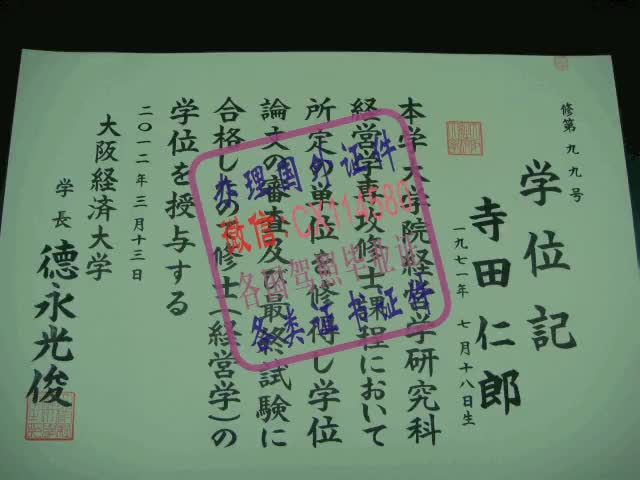 修第九九号
学位記
寺田仁郎
一九七一年 七月十八日生
本学大学院経営学研究科
経営学専攻修士課程において
所定の単位を修得し学位
論文の審査及び最終試験に
合格したので修士(経営学)の
学位を授与する
二〇一二年三月十三日
大阪経済大学
学長 德永光俊
办理国外证件
微信:CX114580
各国驾照毕业证
各类证书证件